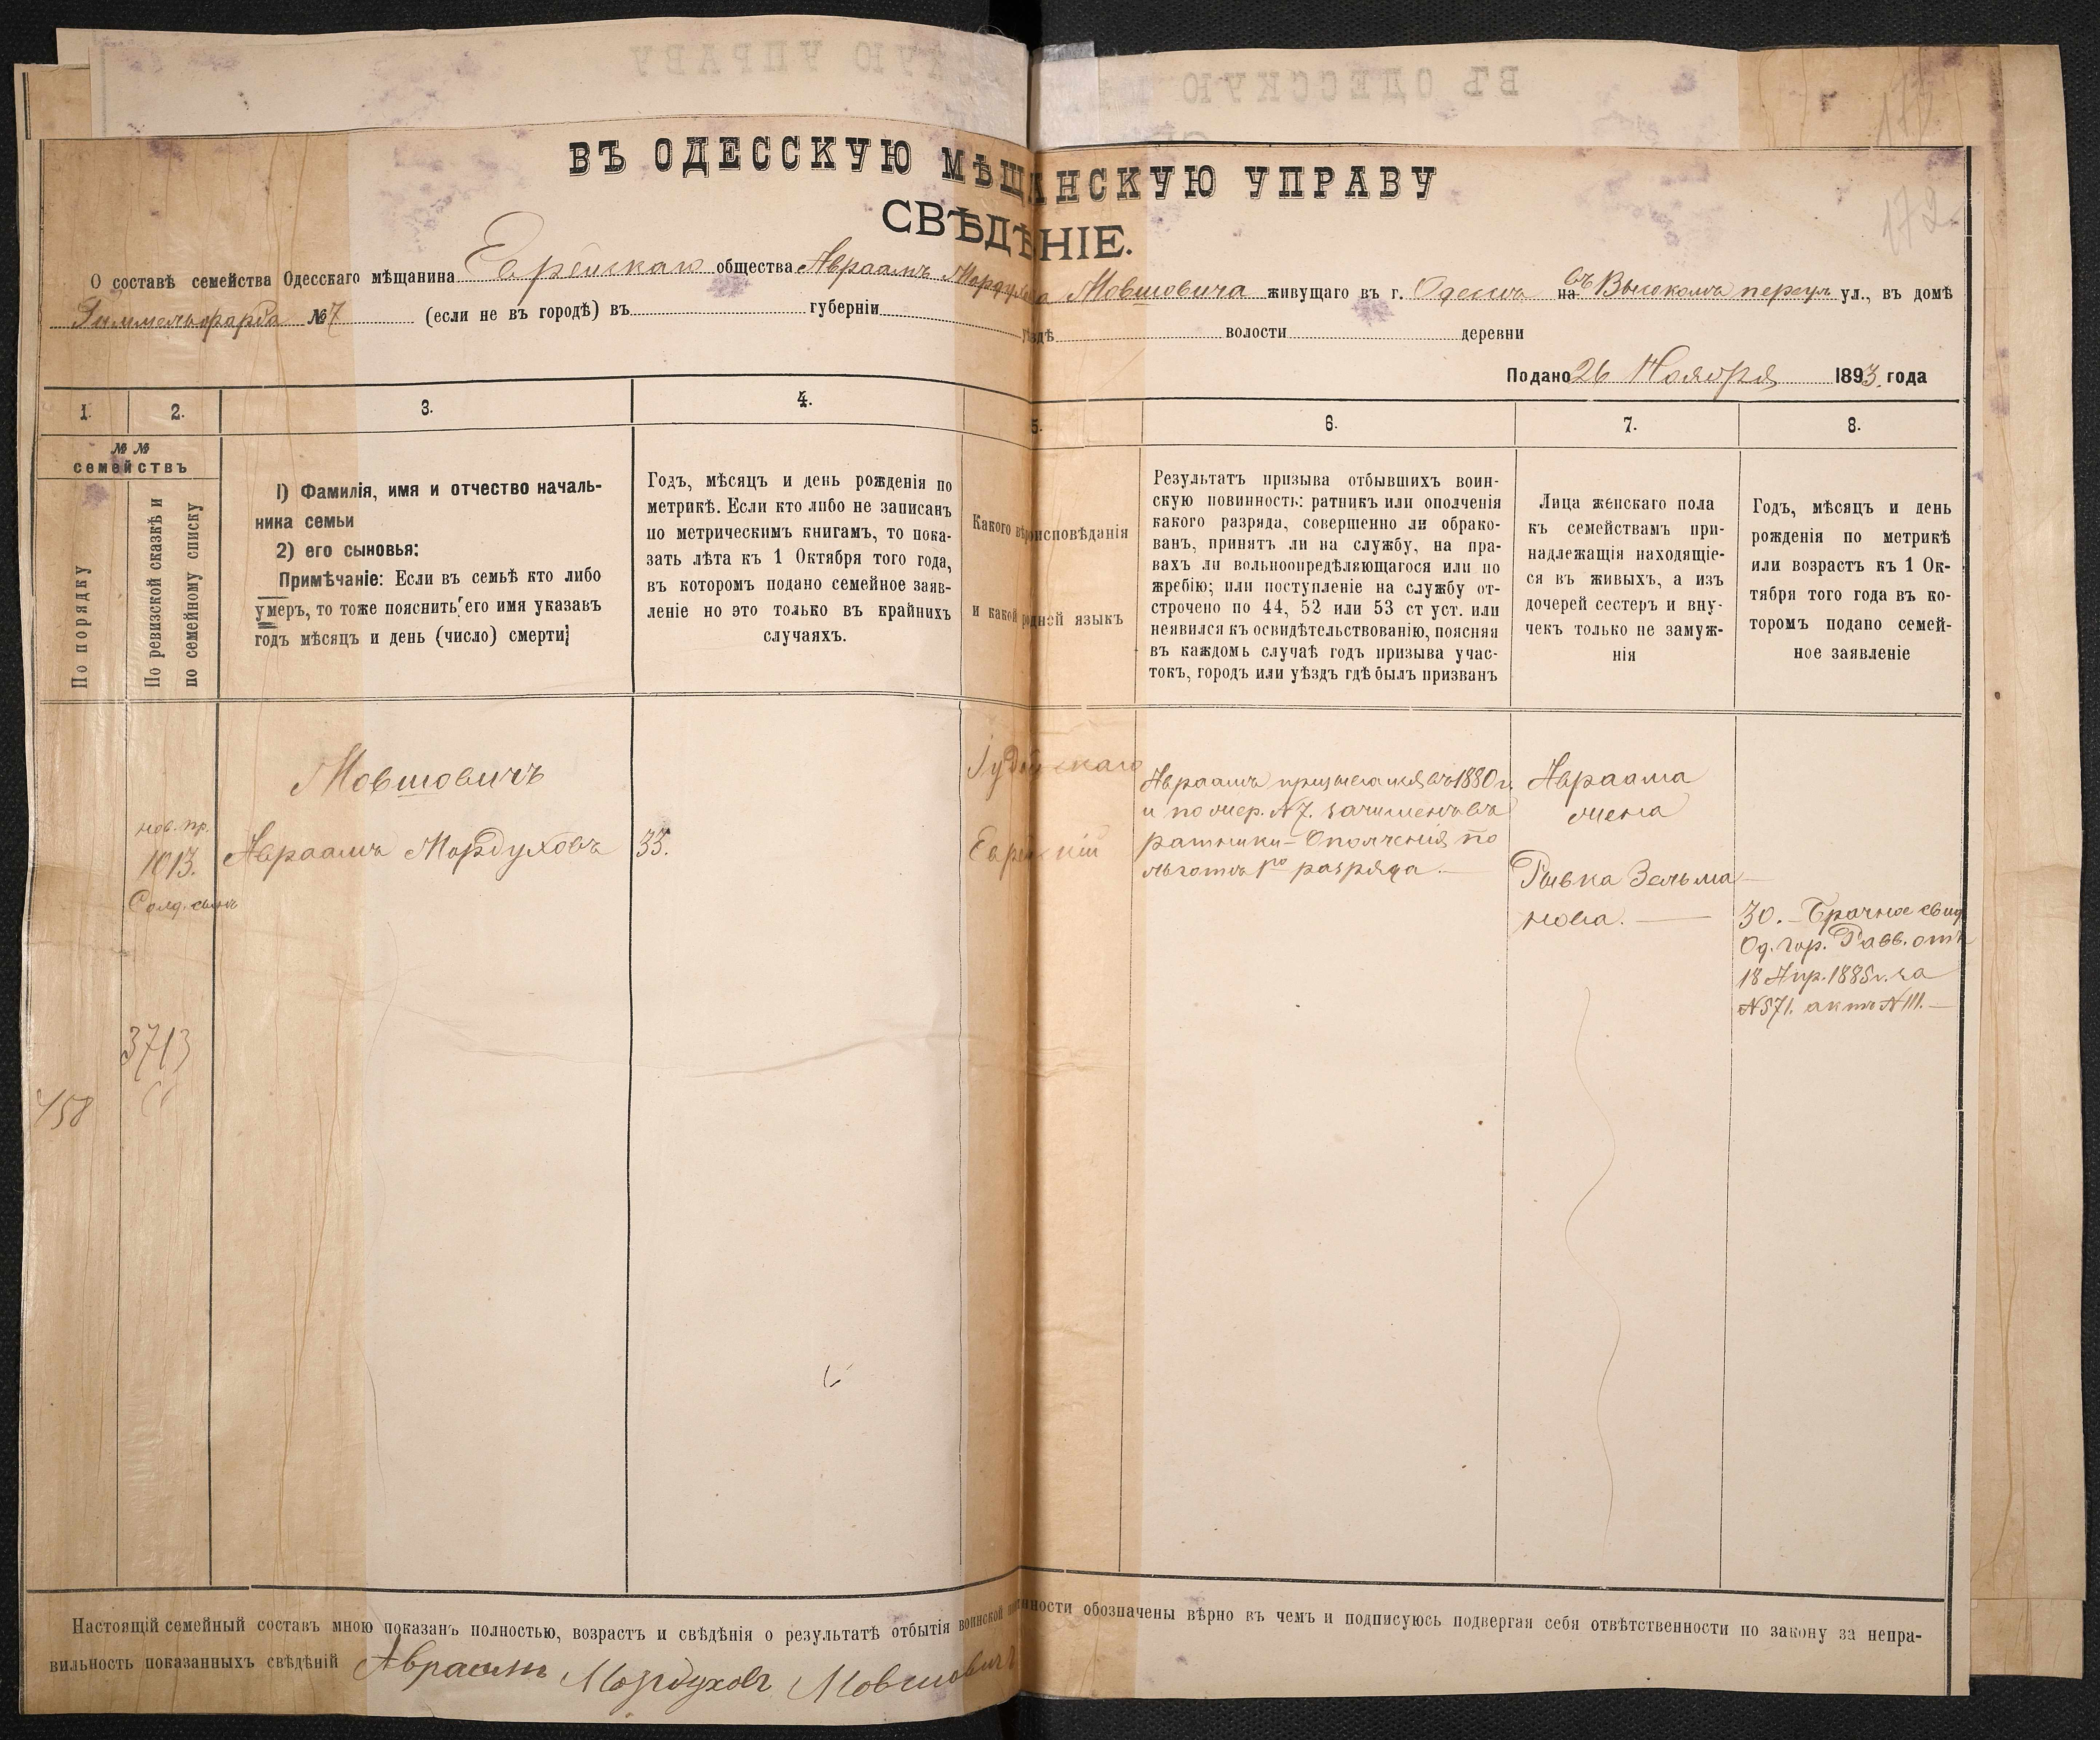 ВЪ ОДЕССКУЮ МѢЩАНСКУЮ УПРАВУ
СВѢДѢНІЕ.
О составѣ семейства Одесскаго мѣщанина Еврейскаго общества Авраамъ Мордухова Мовшовича живущаго въ г. Одессѣ на въ Высокомъ переул ул., въ домѣ
Гиммельфарба №7 (если не въ городѣ) въ губерніи уѣздѣ волости деревни
Подано 26 Ноября 1893 года
1.
2.
3.
4.
5.
6.
7.
8.
№ №
семействъ
По порядку
По ревизской сказкѣ и
по семейному списку
1) Фамилія, имя и отчество началь-
ника семьи
2) его сыновья:
Примѣчаніе: Если въ семьѣ кто либо
умеръ, то тоже пояснить его имя указавъ
годъ мѣсяцъ и день (число) смерти;
Годъ, мѣсяцъ и день рожденія по
метрикѣ. Если кто либо не записанъ
по метрическимъ книгамъ, то пока-
зать лѣта къ 1 Октября того года,
въ которомъ подано семейное заяв-
леніе но это только въ крайнихъ
случаяхъ.
Какого вѣроисповѣданія
и какой родной языкъ
Результатъ призыва отбывшихъ воин-
скую повинность: ратникъ или ополченія
какого разряда, совершенно ли обрако-
ванъ, принятъ ли на службу, на пра-
вахъ ли вольноопредѣляющагося или по
жребію; или поступленіе на службу от-
строчено по 44, 52 или 53 ст уст. или
неявился къ освидѣтельствованію, поясняя
въ каждомъ случаѣ годъ призыва учас-
токъ, городъ или уѣздъ гдѣ былъ призванъ
Лица женскаго пола
къ семействамъ при-
надлежащія находящіе-
ся въ живыхъ, а изъ
дочерей сестеръ и вну-
чекъ только не замуж-
нія
Годъ, мѣсяцъ и день
рожденія по метрикѣ
или возрастъ къ 1 Ок-
тября того года въ ко-
торомъ подано семей-
ное заявленіе
нов. пр.
1013.
Солд. сынъ
3713
458
Мовшовичъ
Авраамъ Мордуховъ
33.
Іудейскаго
Еврейскій
Авраамъ призывался въ 1880 г.
и по жер. №7. зачисленъ въ
ратники Ополченія по
льготѣ 1го разряда.
Авраама
жена
Рывка Зельма
нова.
30. Брачное свид.
Од. гор. Равв. отъ
18 Апр. 1885 г. за
№571. актъ №111.
Настоящій семейный составъ мною показанъ полностью, возрастъ и свѣдѣнія о результатѣ отбытія воинской повинности обозначены вѣрно въ чемъ и подписуюсь подвергая себя отвѣтственности по закону за непра-
вильность показанныхъ свѣдѣній Авраамъ Мордуховъ Мовшовичъ
172